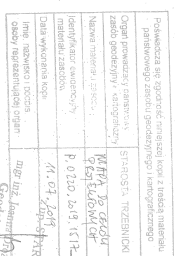 Poświadcza się zgodność niniejszej kopii z treścią materiału
państwowego zasobu geodezyjnego i kartograficznego
Organ prowadzący państwowy
zasób geodezyjny i kartograficzny
STAROSTA TRZEBNICKI
Nazwa materiału zasobu
MAPA DO CELÓW
PROJEKTOWYCH
Identyfikator ewidencyjny
materiału zasobu
P.0220.2019.1617
Data wykonania kopii
11.07.2019
Imię, nazwisko i podpis
osoby reprezentującej organ
mgr inż. Joanna